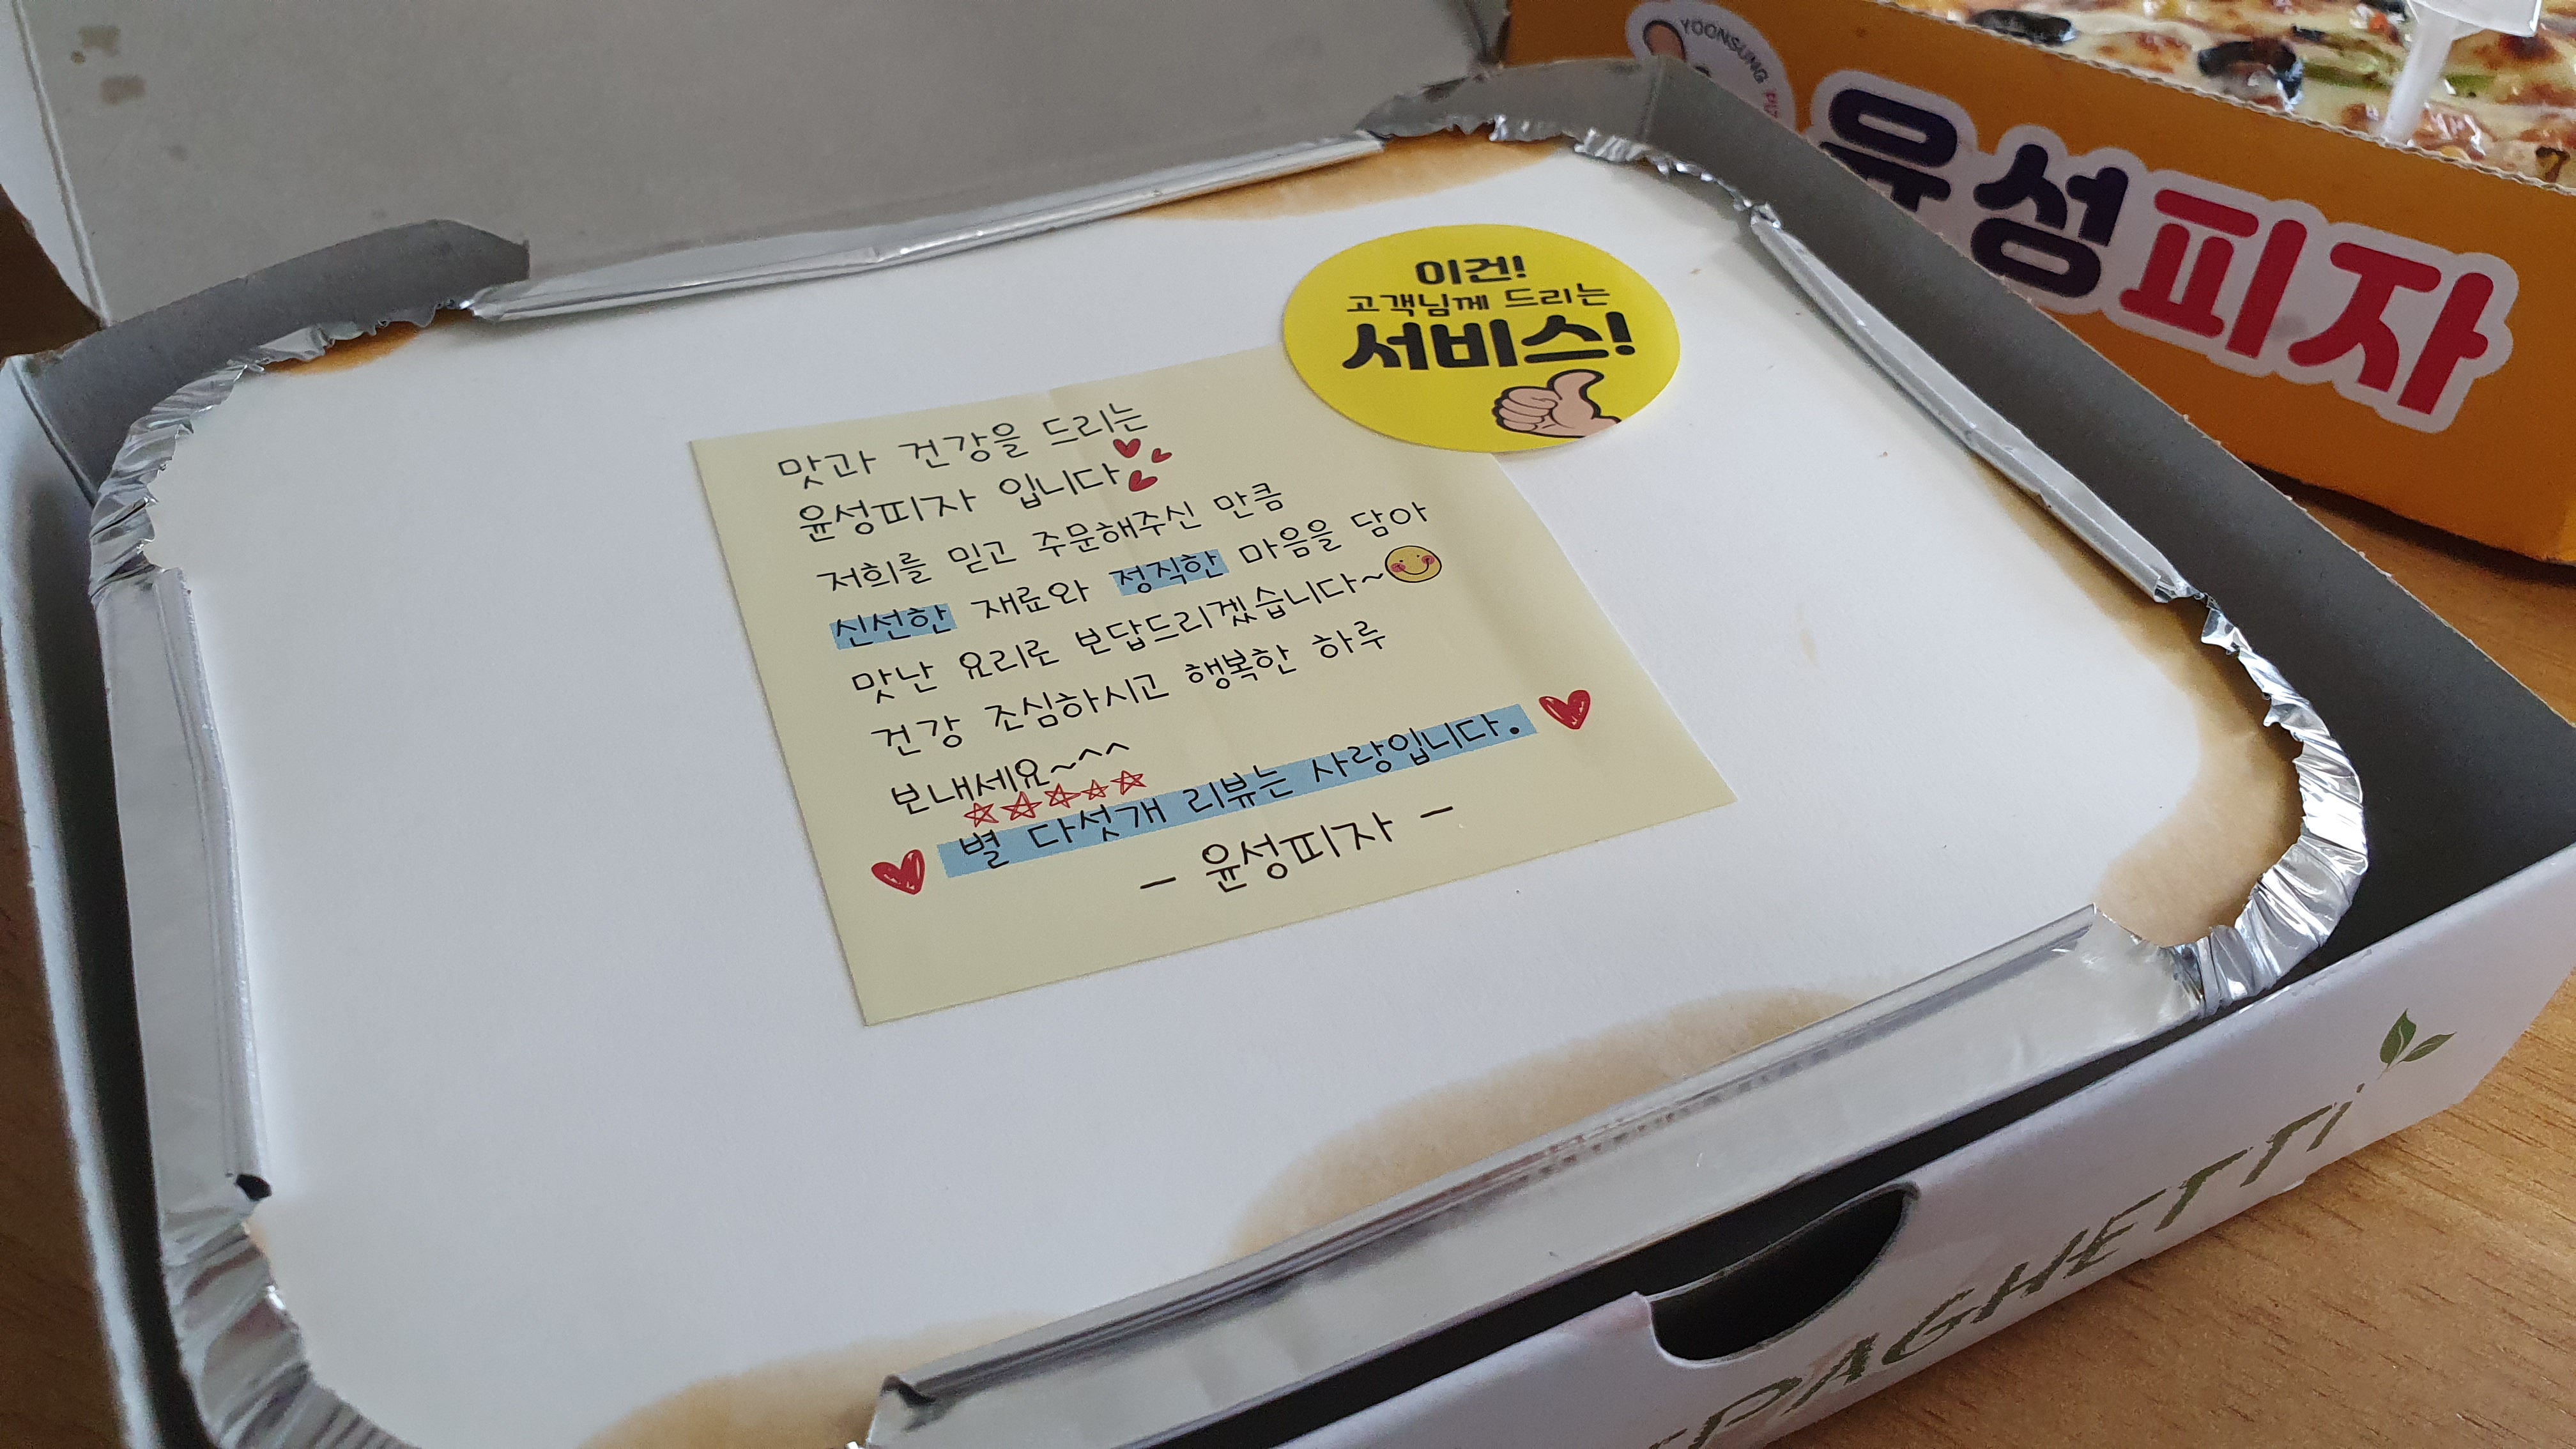 YOONSUNG
윤성피자
이건!
고객님께 드리는
서비스!
맛과 건강을 드리는
윤성피자 입니다
저희를 믿고 주문해주신 만큼
신선한 재료와 정직한 마음을 담아
맛난 요리로 보답드리겠습니다~
건강 조심하시고 행복한 하루
보내세요~^^
별 다섯개 리뷰는 사랑입니다.
- 윤성피자 -
SPAGHETTi